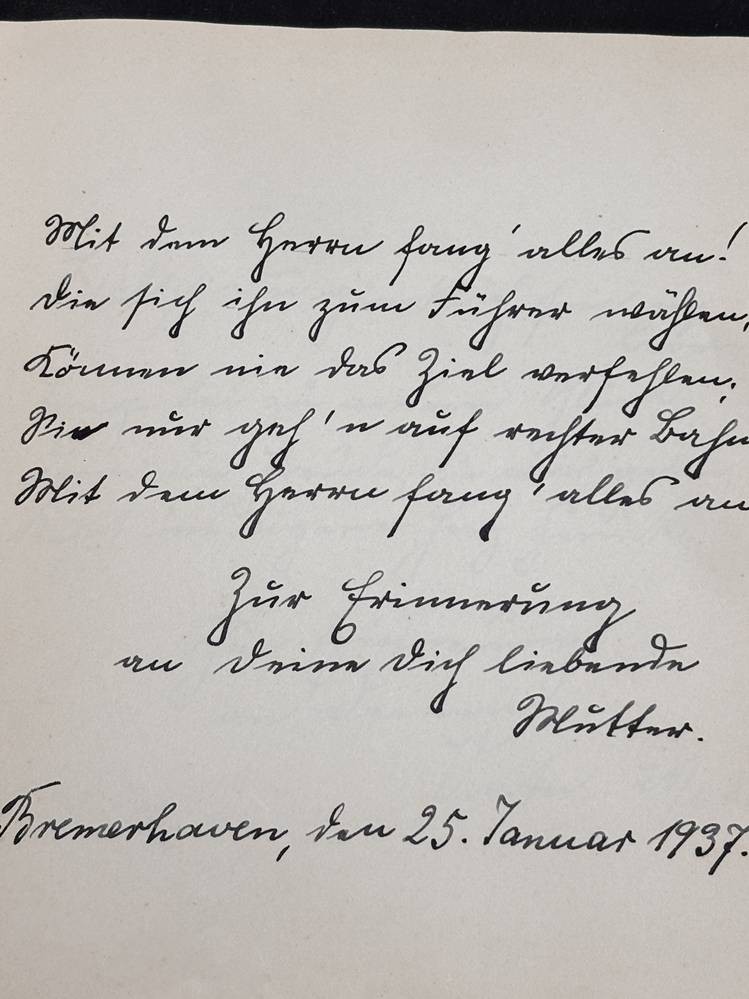 Mit dem Herrn fang' alles an!
Die sich ihn zum Führer wählen,
Können nie das Ziel verfehlen;
Sie nur geh'n auf rechter Bahn
Mit dem Herrn fang' alles an
Zur Erinnerung
an Deine Dich liebende
Mutter.
Bremerhaven, den 25. Januar 1937.